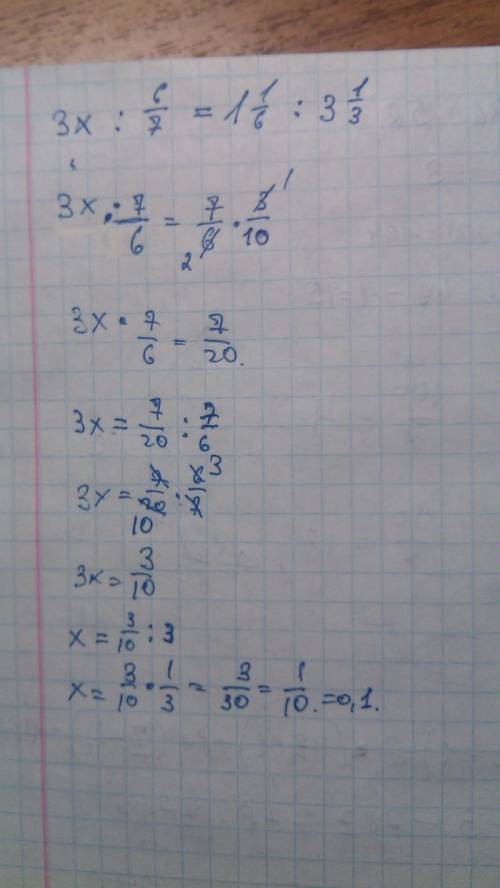 3x : 6/7 = 1 1/6 : 3 1/3
3x · 7/6 = 7/6 2 · 3/10 1
3x · 7/6 = 7/20.
3x = 7/20 : 7/6
3x = 10 : 3
3x = 3/10
x = 3/10 : 3
x = 3/10 · 1/3 = 3/30 = 1/10. = 0,1.